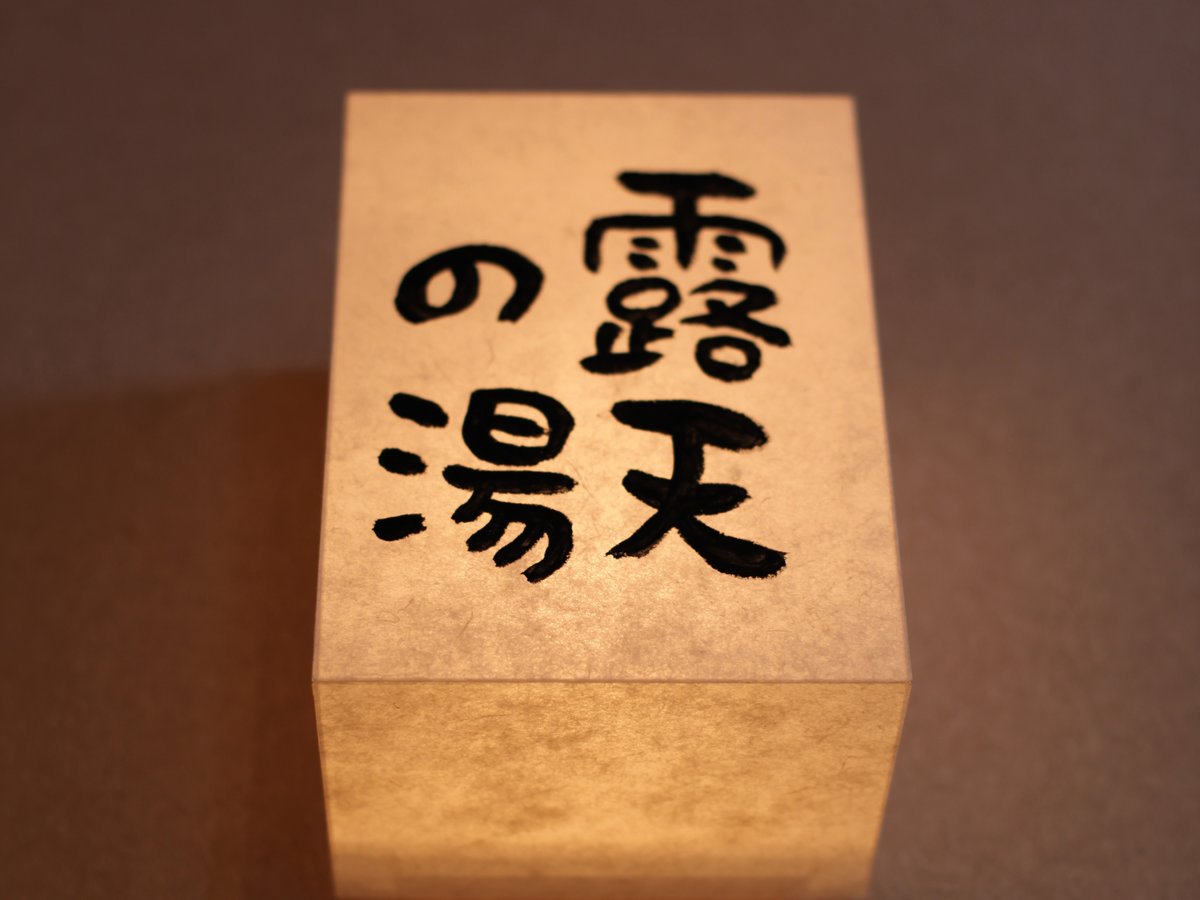 露天
の湯